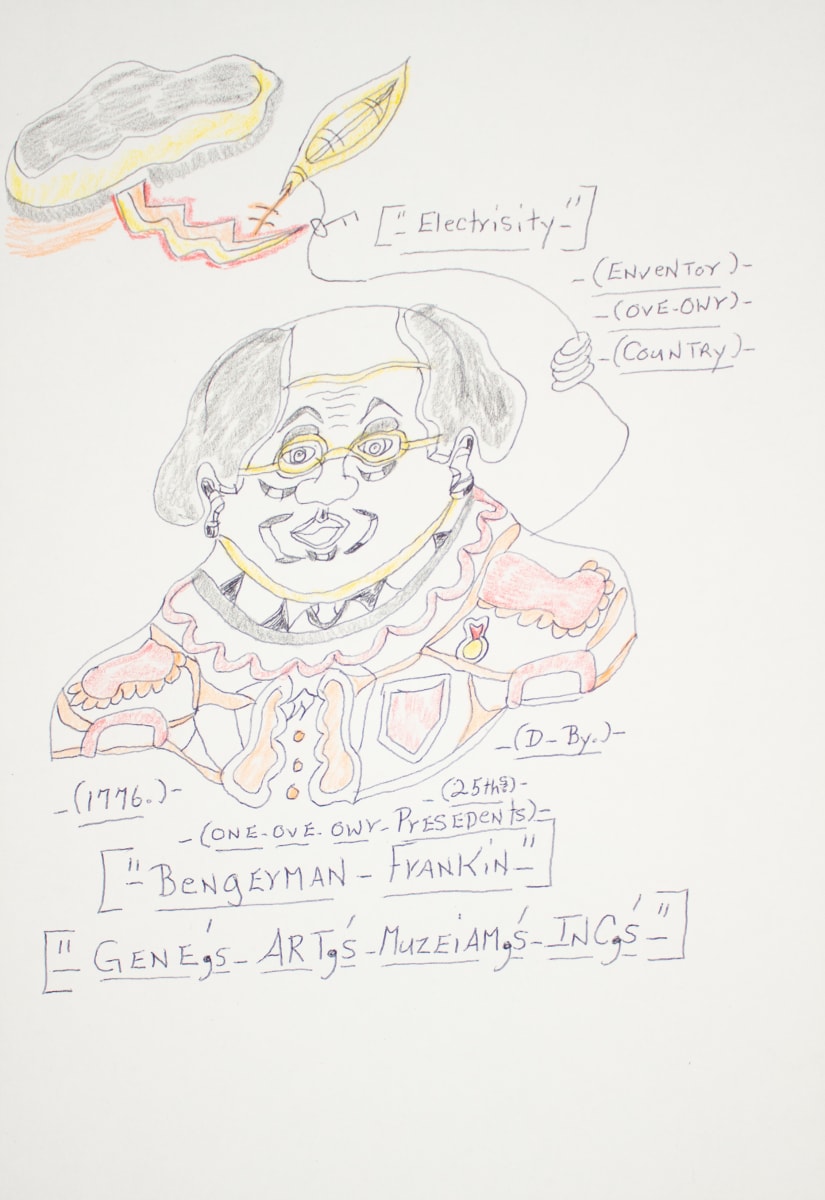 ["Electrisity-"]
-(ENVENTOr)-
-(OVE-OWr)-
-(COUNTry)-
-(D-By.)-
-(1776.)-
-(25ths)-
-(ONE-OVE-OWr-PrESEDENts)-
["BENgErMAN-FrANKiN-"]
["GENE'gs-ARTg's-MUZEiAMg's-INCg's-"]